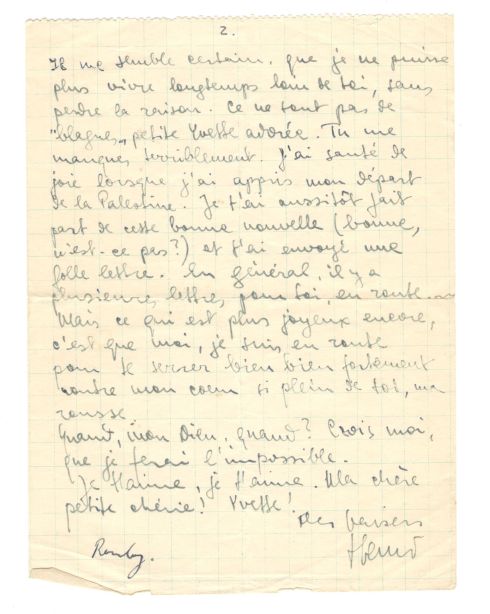 2.
Il me semble certain, que je ne puisse
plus vivre longtemps loin de toi, sans
perdre la raison. Ce ne sont pas de
"blagues", petite Yvette adorée. Tu me
manques terriblement. J'ai sauté de
joie lorsque j'ai appris mon départ
de la Palestine. Je t'ai aussitôt fait
part de cette bonne nouvelle (bonne,
n'est-ce pas?) et t'ai envoyé une
folle lettre. En général, il y a
plusieures lettres pour toi, en route...
Mais ce qui est plus joyeux encore,
c'est que moi, je suis en route
pour te serrer bien bien fortement
contre mon coeur si plein de toi, ma
rousse.
Quand, mon Dieu, quand? Crois moi,
que je ferai l'impossible.
Je t'aime, je t'aime. Ma chère
petite chérie! Yvette!
Des baisers